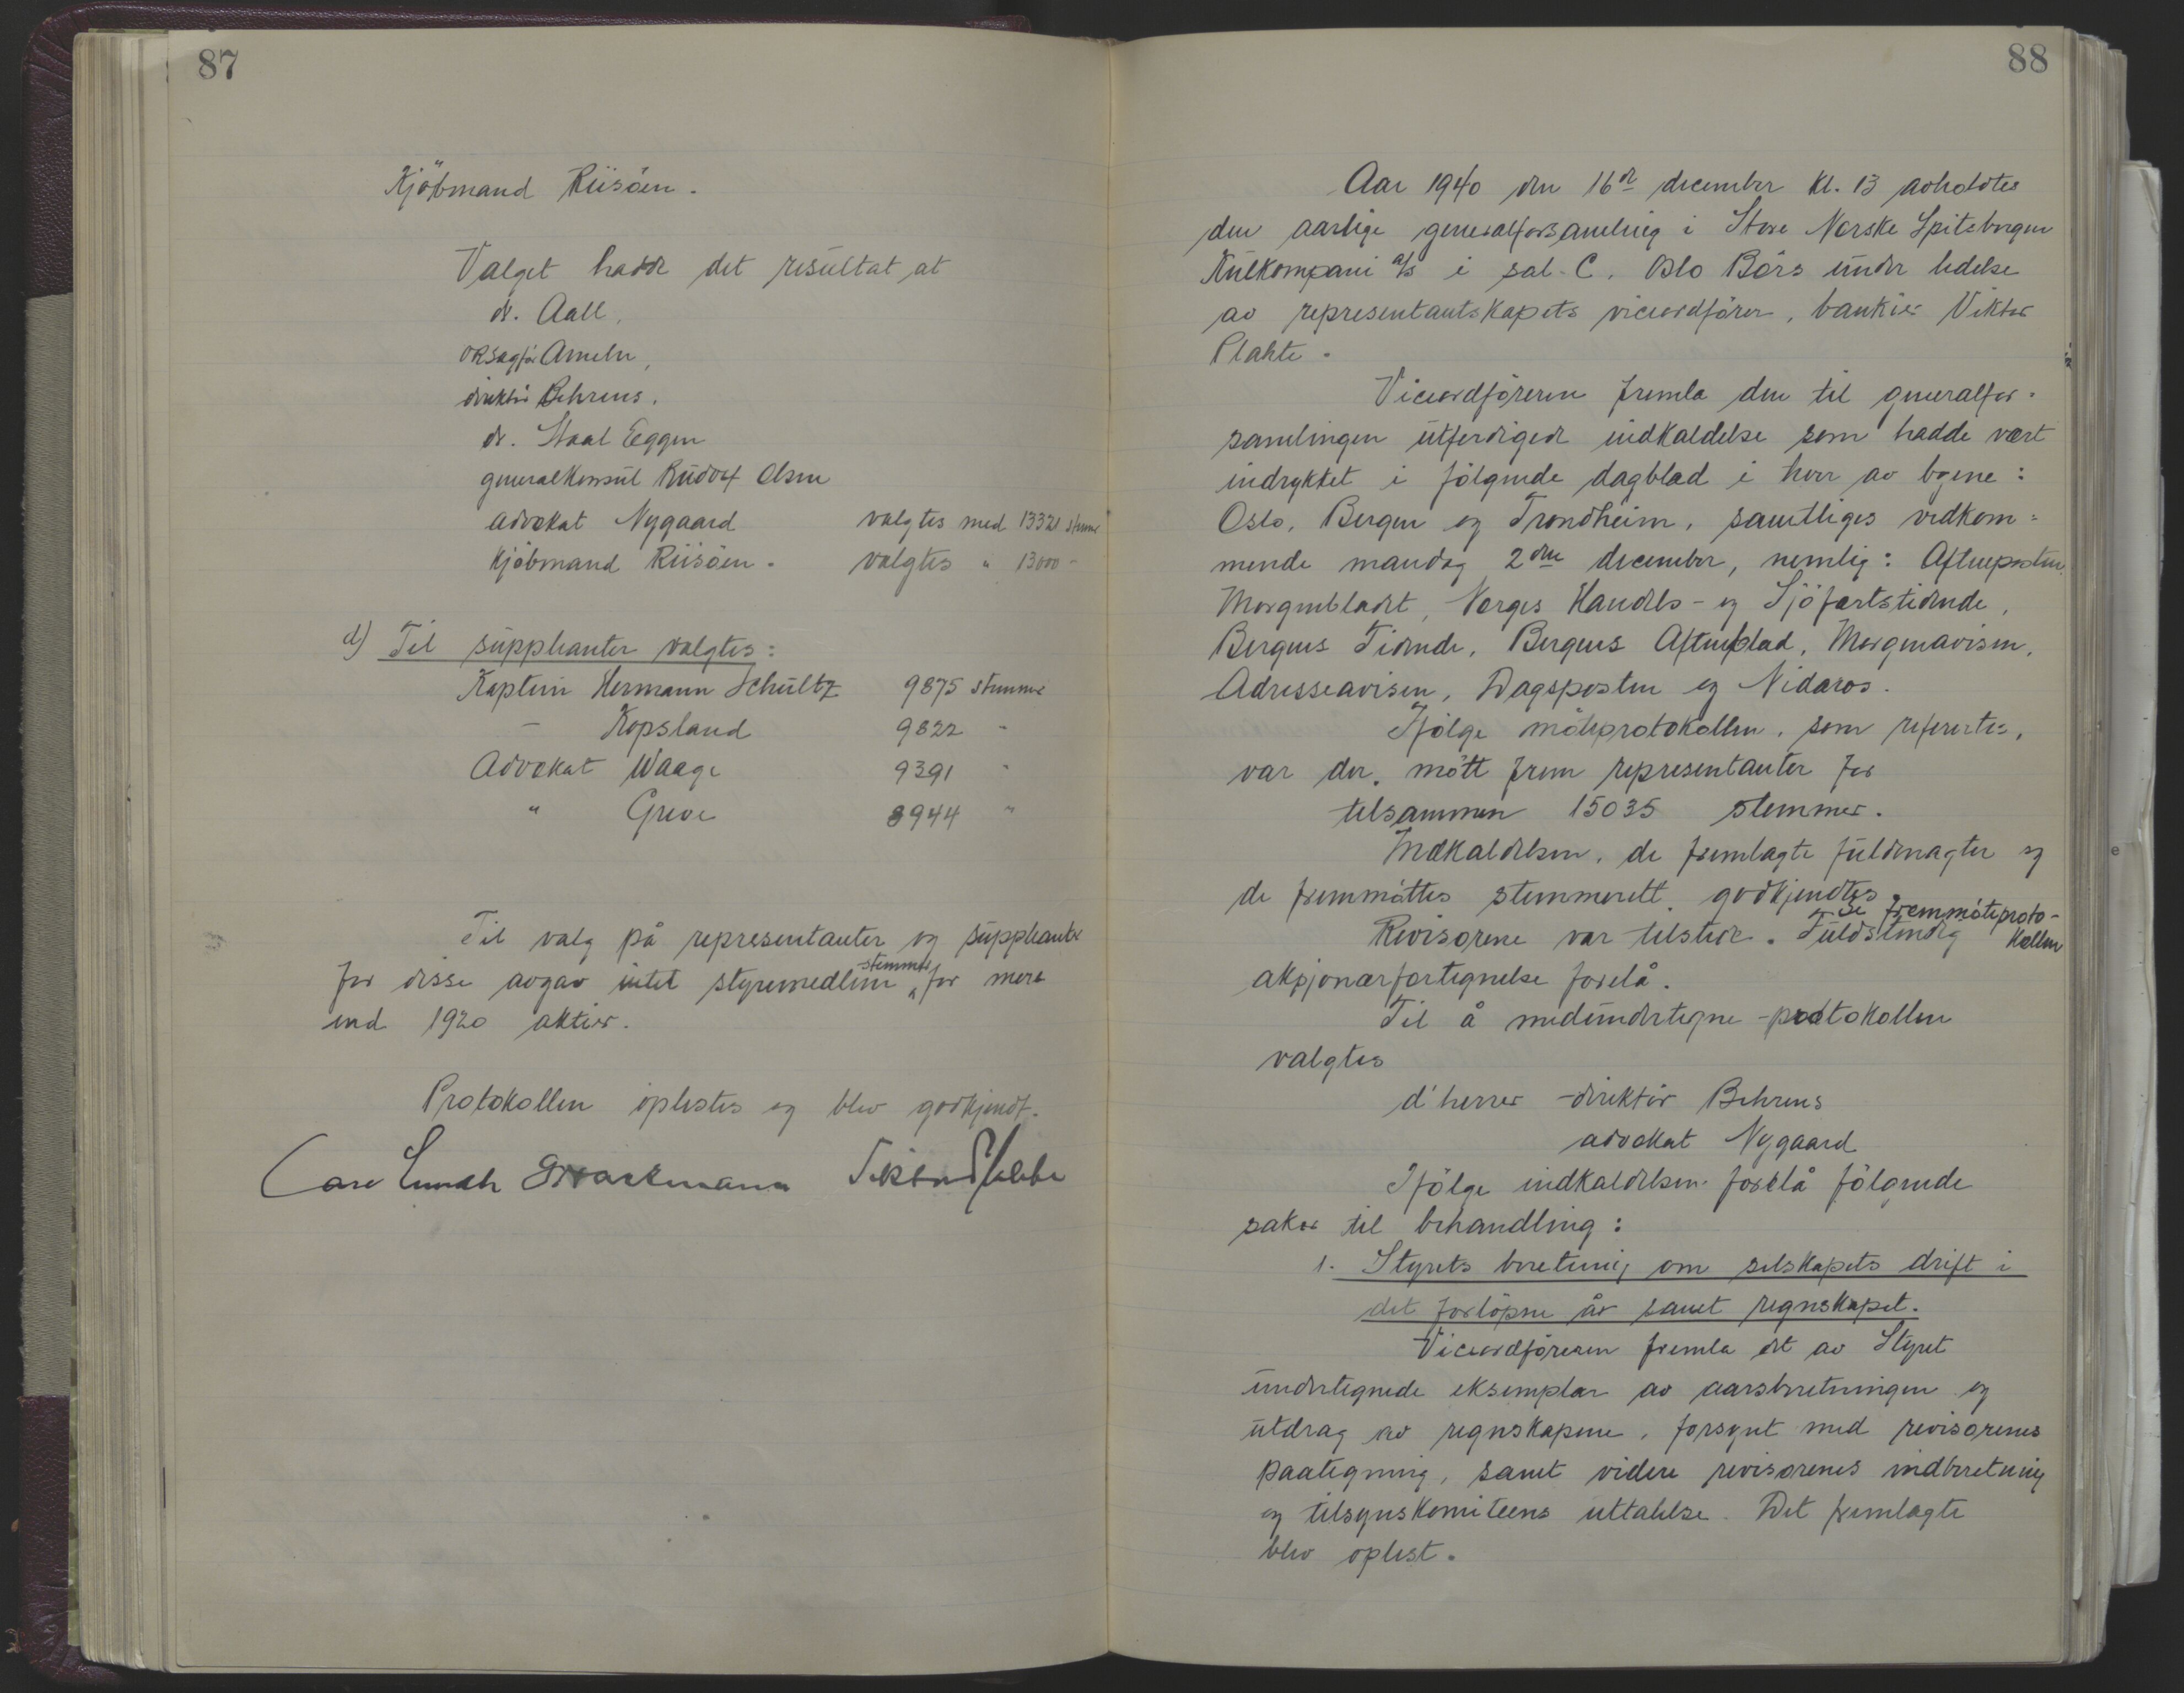 87
Kjöbmand Riisöen.
Valget hadde det resultat at
dr. Aall,
ORsagför Ameln,
direktör Behrens,
dr. Staal Eggen
generalkonsul Rudolf Olsen
advokat Nygaard valgtes med 13321 stemmer
Kjöbmand Riisöen. valgtes " 13000 -
d) Til suppleanter valgtes:
Kaptein Hermann Schultz 9875 stemmer
- Kopsland 9822 -
Advokat Waage 9391 "
" Greve 8944 "
Til valg på representanter og suppleanter
for disse avgav intet styremedlem stemmer for mere
end 1920 aktier.
Protokollen oplestes og blev godkjendt.
88
Aar 1940 den 16de december kl. 13 avholdtes
den aarlige generalforsamling i Store Norske Spitsbergen
Kulkompani A/S i sal C, Oslo Börs under ledelse
av representantskapets viceordförer, bankier Viktor
Plahte.
Viceordföreren fremla den til generalfor-
samlingen utferdigede indkaldelse som hadde vært
indrykket i fölgende dagblad i hver av byene:
Oslo, Bergen og Trondheim, samtliges vedkom-
mende mandag 2den december, nemlig: Aftenposten,
Morgenbladet, Norges Handels- og Sjöfartstidende,
Bergens Tidende, Bergens Aftenblad, Morgenavisen,
Adresseavisen, Dagsposten og Nidaros.
Ifölge möteprotokollen, som refertes,
var der mött frem representanter for
tilsammen 15035 stemmer.
Indkaldelsen, de fremlagte fuldmagter og
de fremmöttes stemmerett godkjendtes
se fremmöteproto-
kollen
Revisorene var tilstede. Fuldstendig
aksjonærfortegnelse forelå.
Til å medundertegne protokollen
valgtes
d'herrer direktör Behrens
advokat Nygaard
Ifölge indkaldelsen forelå fölgende
saker til behandling:
1. Styrets beretning om selskapets drift i
det forlöpne år samt regnskapet.
Viceordföreren fremla et av Styret
undertegnede eksemplar av aarsberetningen og
utdrag av regnskapene, forsynt med revisorenes
paategning, samt videre revisorenes indberetning
og tilsynskomiteens uttalelse. Det fremlagte
blev oplest.